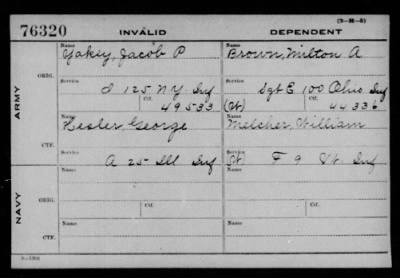 (3-M-5)
76320 INVALID DEPENDENT
Name Name
Yakey, Jacob P Brown, Milton A
ORIG.
Service Service
I 125 N.Y. Inf Sgt E 100 Ohio Inf
Ctf. Ctf.
49533 (Wt) 44336
ARMY
Name Name
Kesler, George Melcher, William
CTF.
Service Service
A 25 Ill Inf (Wt) F 9 Vt Inf
Name Name
ORIG.
Service Ctf. Service Ctf.
NAVY
Name Name
CTF.
Service Service